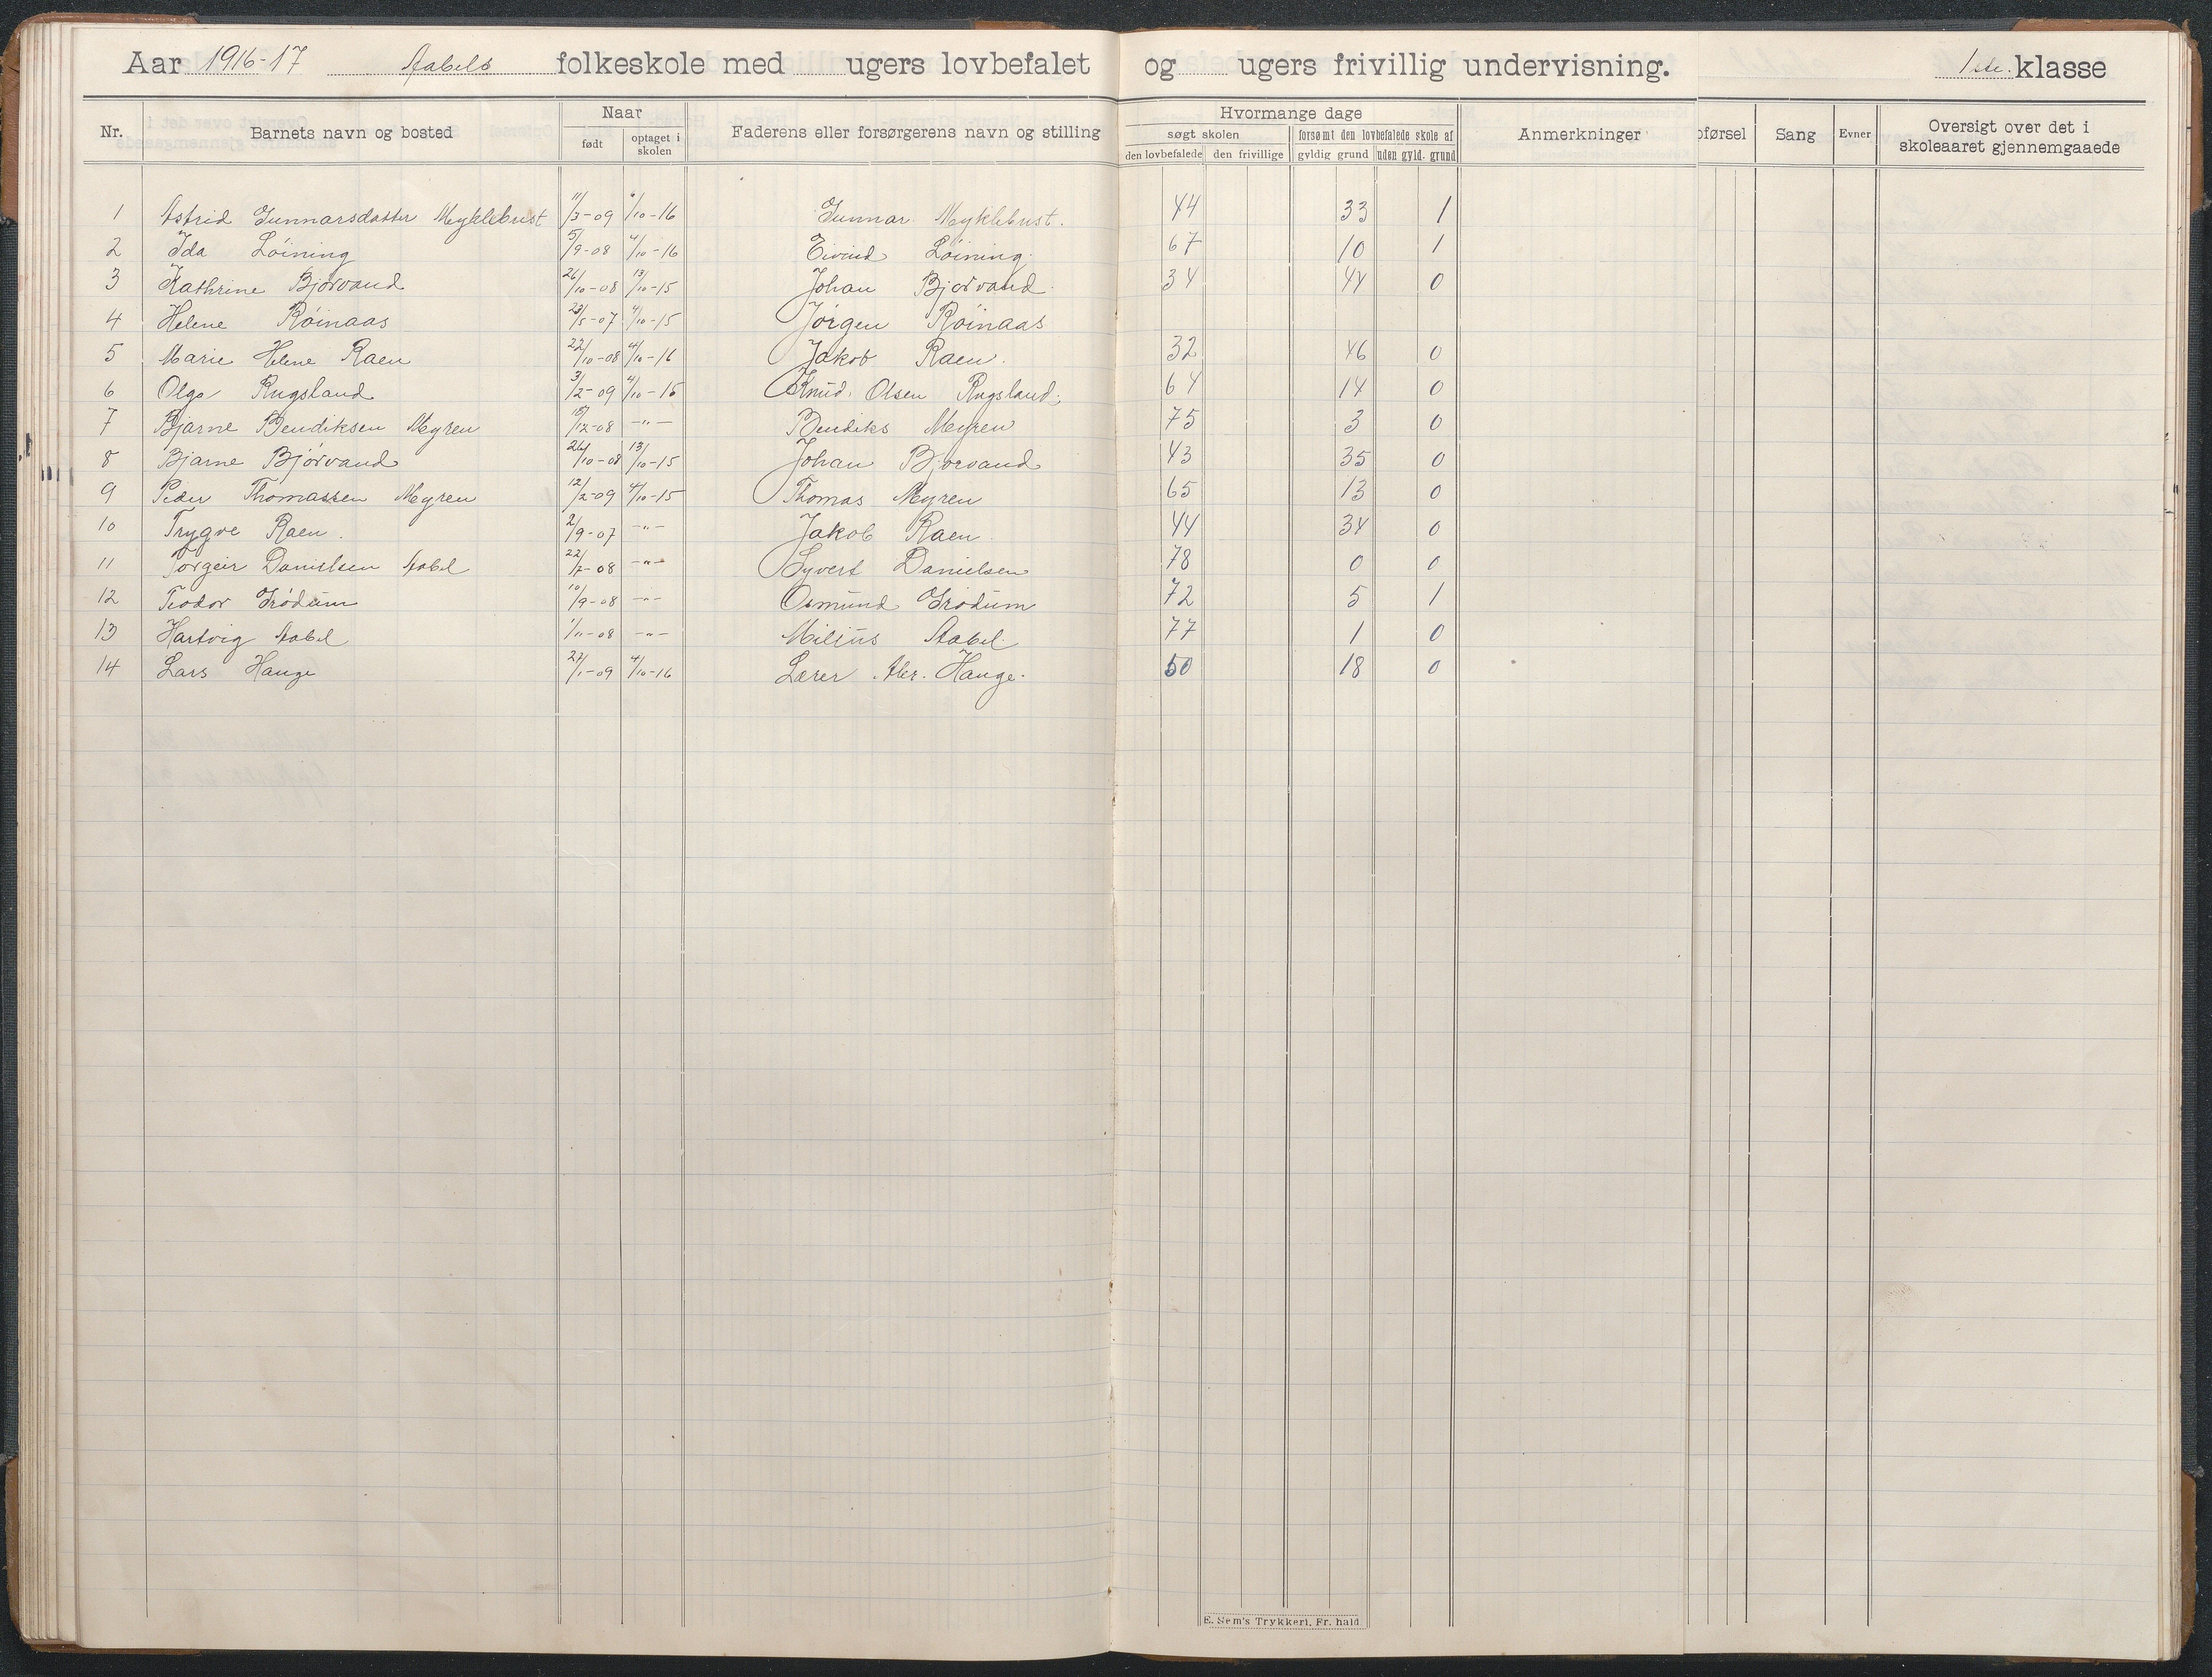 Aar 1916-17 Aabels folkeskole med ugers lovbefalet og ugers frivillig undervisning. 1ste klasse
Nr. Barnets navn og bosted Naar født optaget i skolen Faderens eller forsørgerens navn og stilling Hvormange dage søgt skolen den lovbefalede den frivillige forsømt den lovbefalede skole af gyldig grund uden gyld. grund Anmerkninger oførsel Sang Evner Oversigt over det i skoleaaret gjennemgaaede
1 Astrid Gunnarsdatter Myklebust 11/3-09 4/10-16 Gunnar Myklebust. 44 33 1
2 Ida Løining 5/9-08 4/10-16 Eivind Løining. 67 10 1
3 Kathrine Bjorvand 26/10-08 13/10-15 Johan Bjorvand. 34 44 0
4 Helene Røinaas 23/5-07 4/10-15 Jørgen Røinaas
5 Marie Helene Raen 22/10-08 4/10-16 Jakob Raen. 32 46 0
6 Olga Rugsland 3/2-09 4/10-15 Knud. Olsen Rugsland. 64 14 0
7 Bjarne Bendiksen Myren 15/12-08 -"- Bendiks Myren 75 3 0
8 Bjarne Bjørvand 26/10-08 13/10-15 Johan Bjorvand 43 35 0
9 Peder Thomassen Myren 12/2-09 4/10-15 Thomas Myren 65 13 0
10 Trygve Raen. 2/9-07 -"- Jakob Raen. 44 34 0
11 Torgeir Danielsen Aabel 22/7-08 -"- Syvert Danielsen 78 0 0
12 Teodor Grødum 10/9-08 -"- Osmund Grødum 72 5 1
13 Hartvig Aabel 1/11-08 -"- Milius Aabel. 77 1 0
14 Lars Hauge 27/1-09 4/10-16 Lærer Hauge. 50 18 0
E. Sem's Trykkeri, Fr. hald